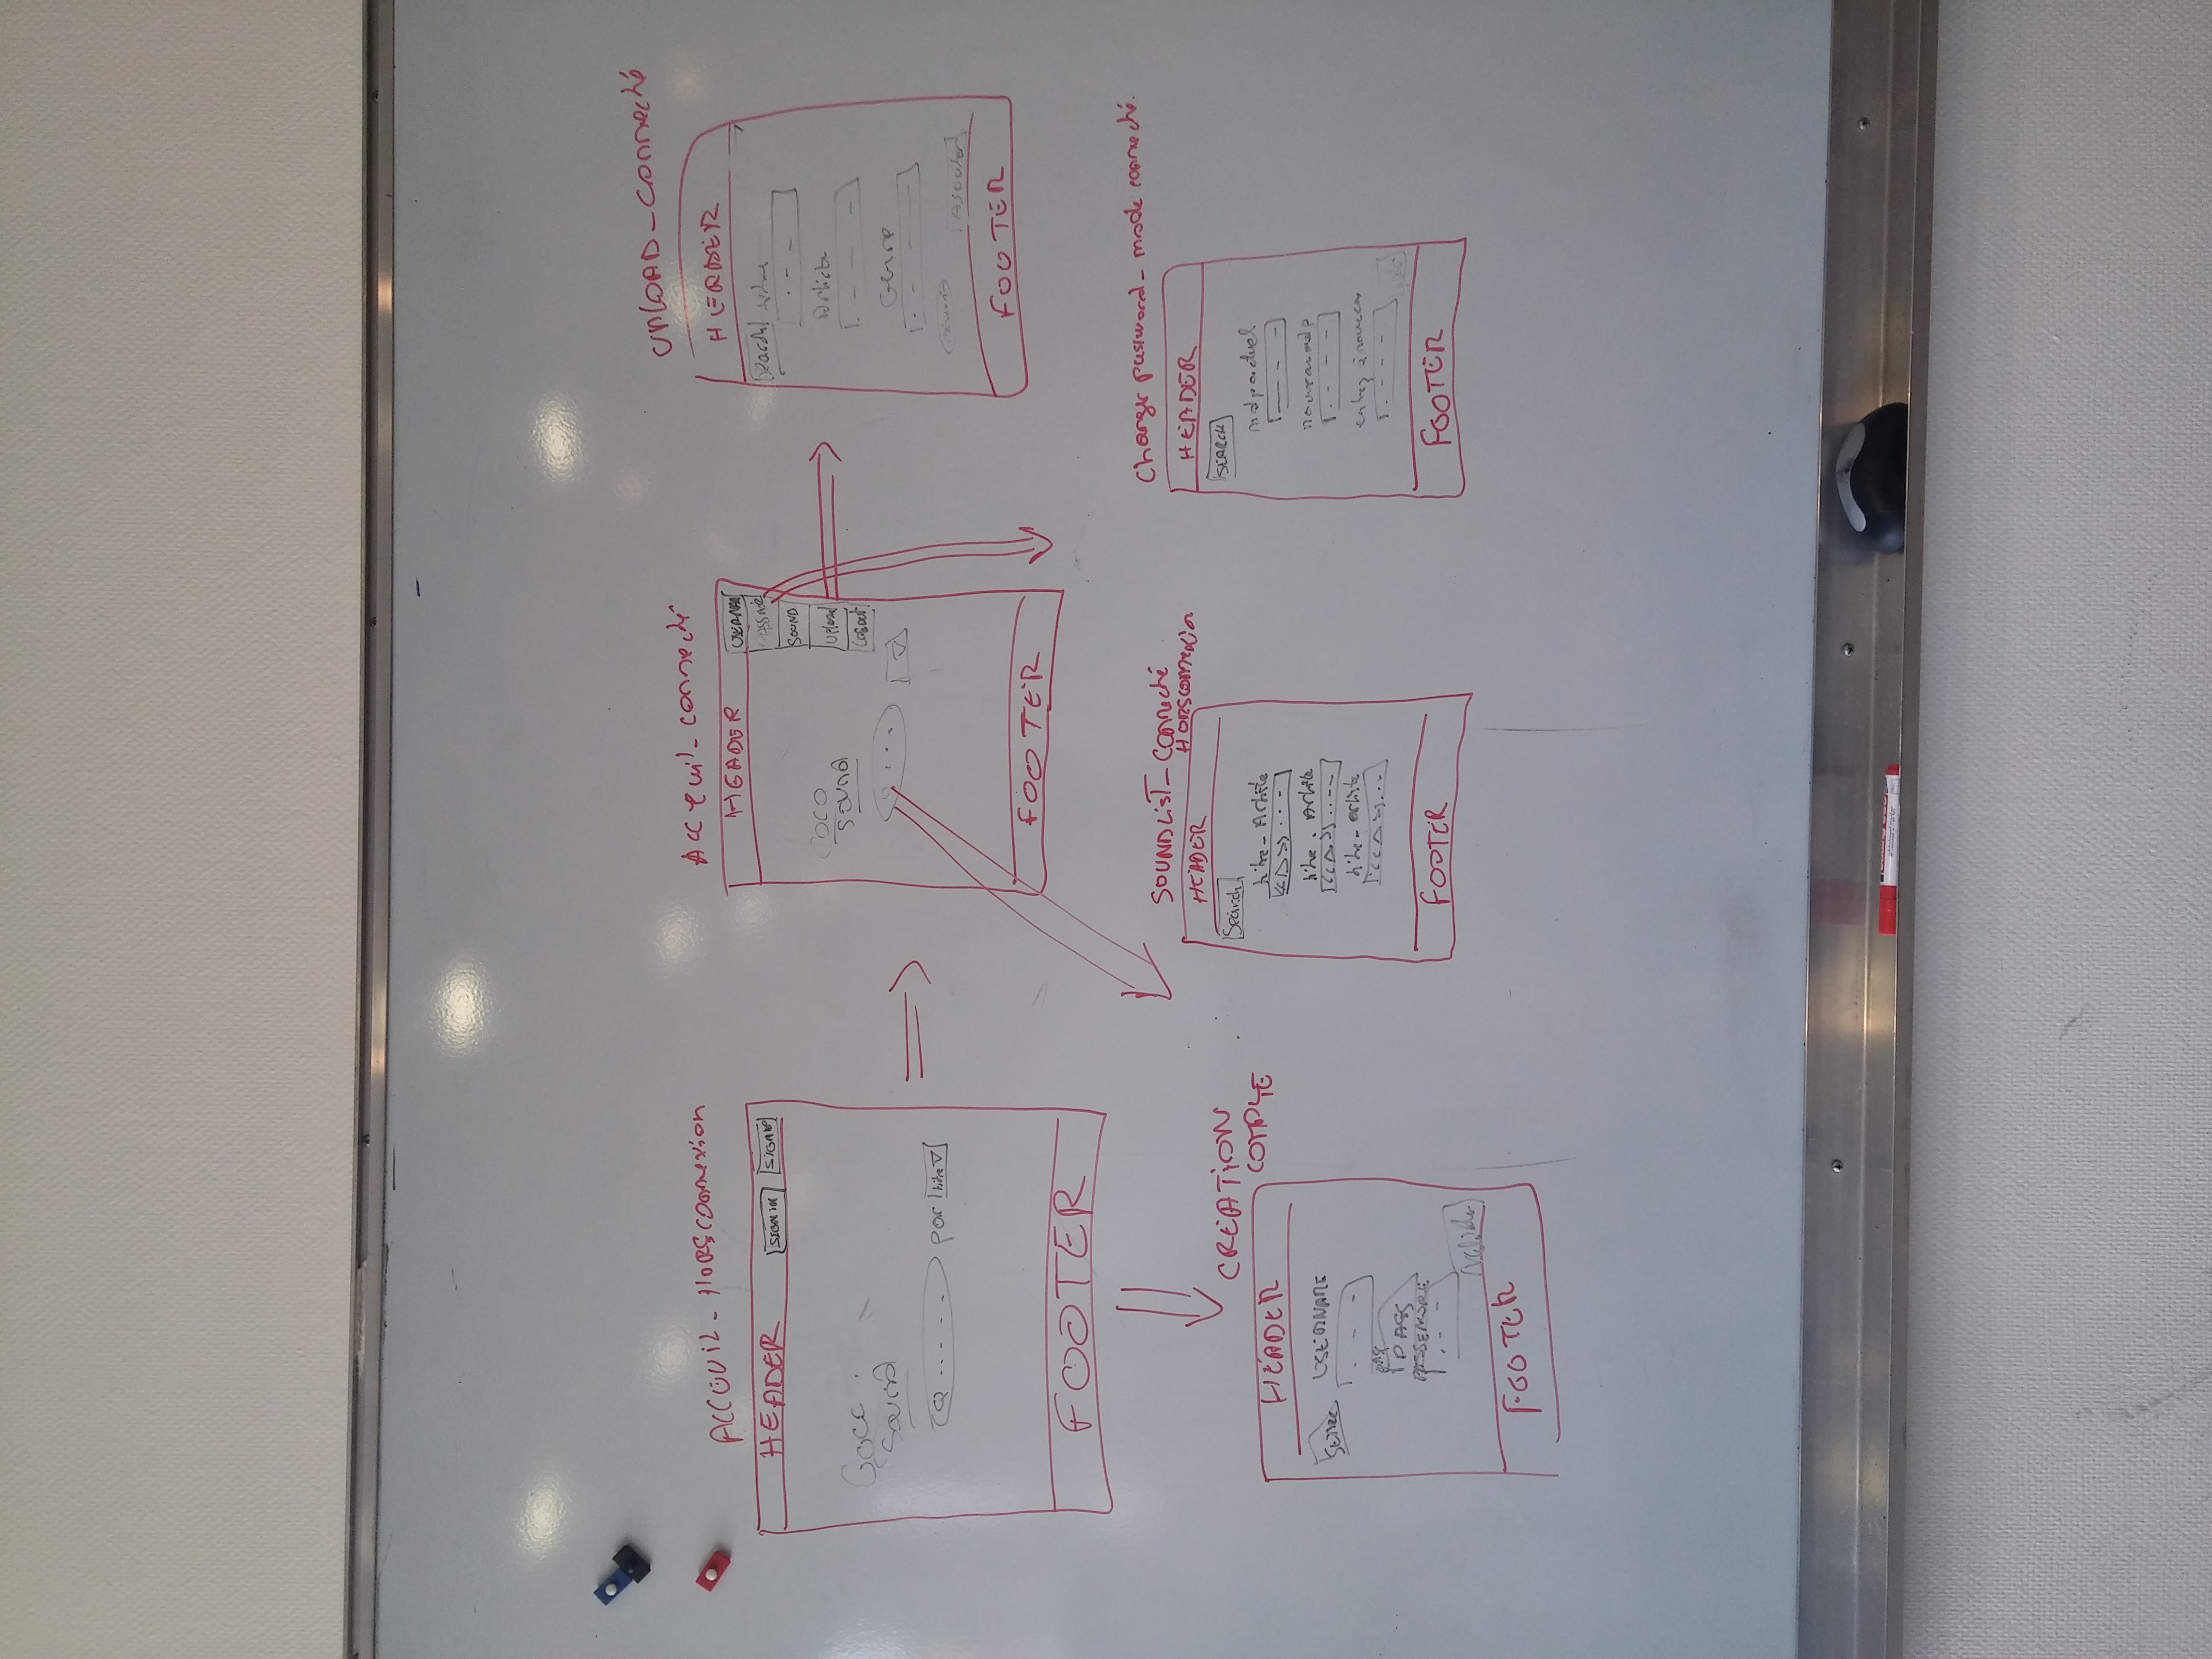 ACCOUIL - HORSCONNEXION
HEADER
SIGN IN
SIGN UP
Goco
Sound
Q .....
par titre ▽
FOOTER
Accueuil - connecté
HEADER
USERNAME
SOUND
Upload
Logout
COCO
Sound
FOOTER
UPLOAD - connecté
HEADER
Search
titre
Article
Genre
Ajouter
FOOTER
CREATION
COMPTE
HEADER
USERNAME
PASS
Valider
FOOTER
SOUNDLIST - connecté
HORSCONNEXION
HEADER
Search
titre - Artiste
<< ▷ >> ...
titre - Artiste
titre - artiste
FOOTER
Changer password - mode connecté.
HEADER
SEARCH
mdp actuel
nouveau mdp
FOOTER